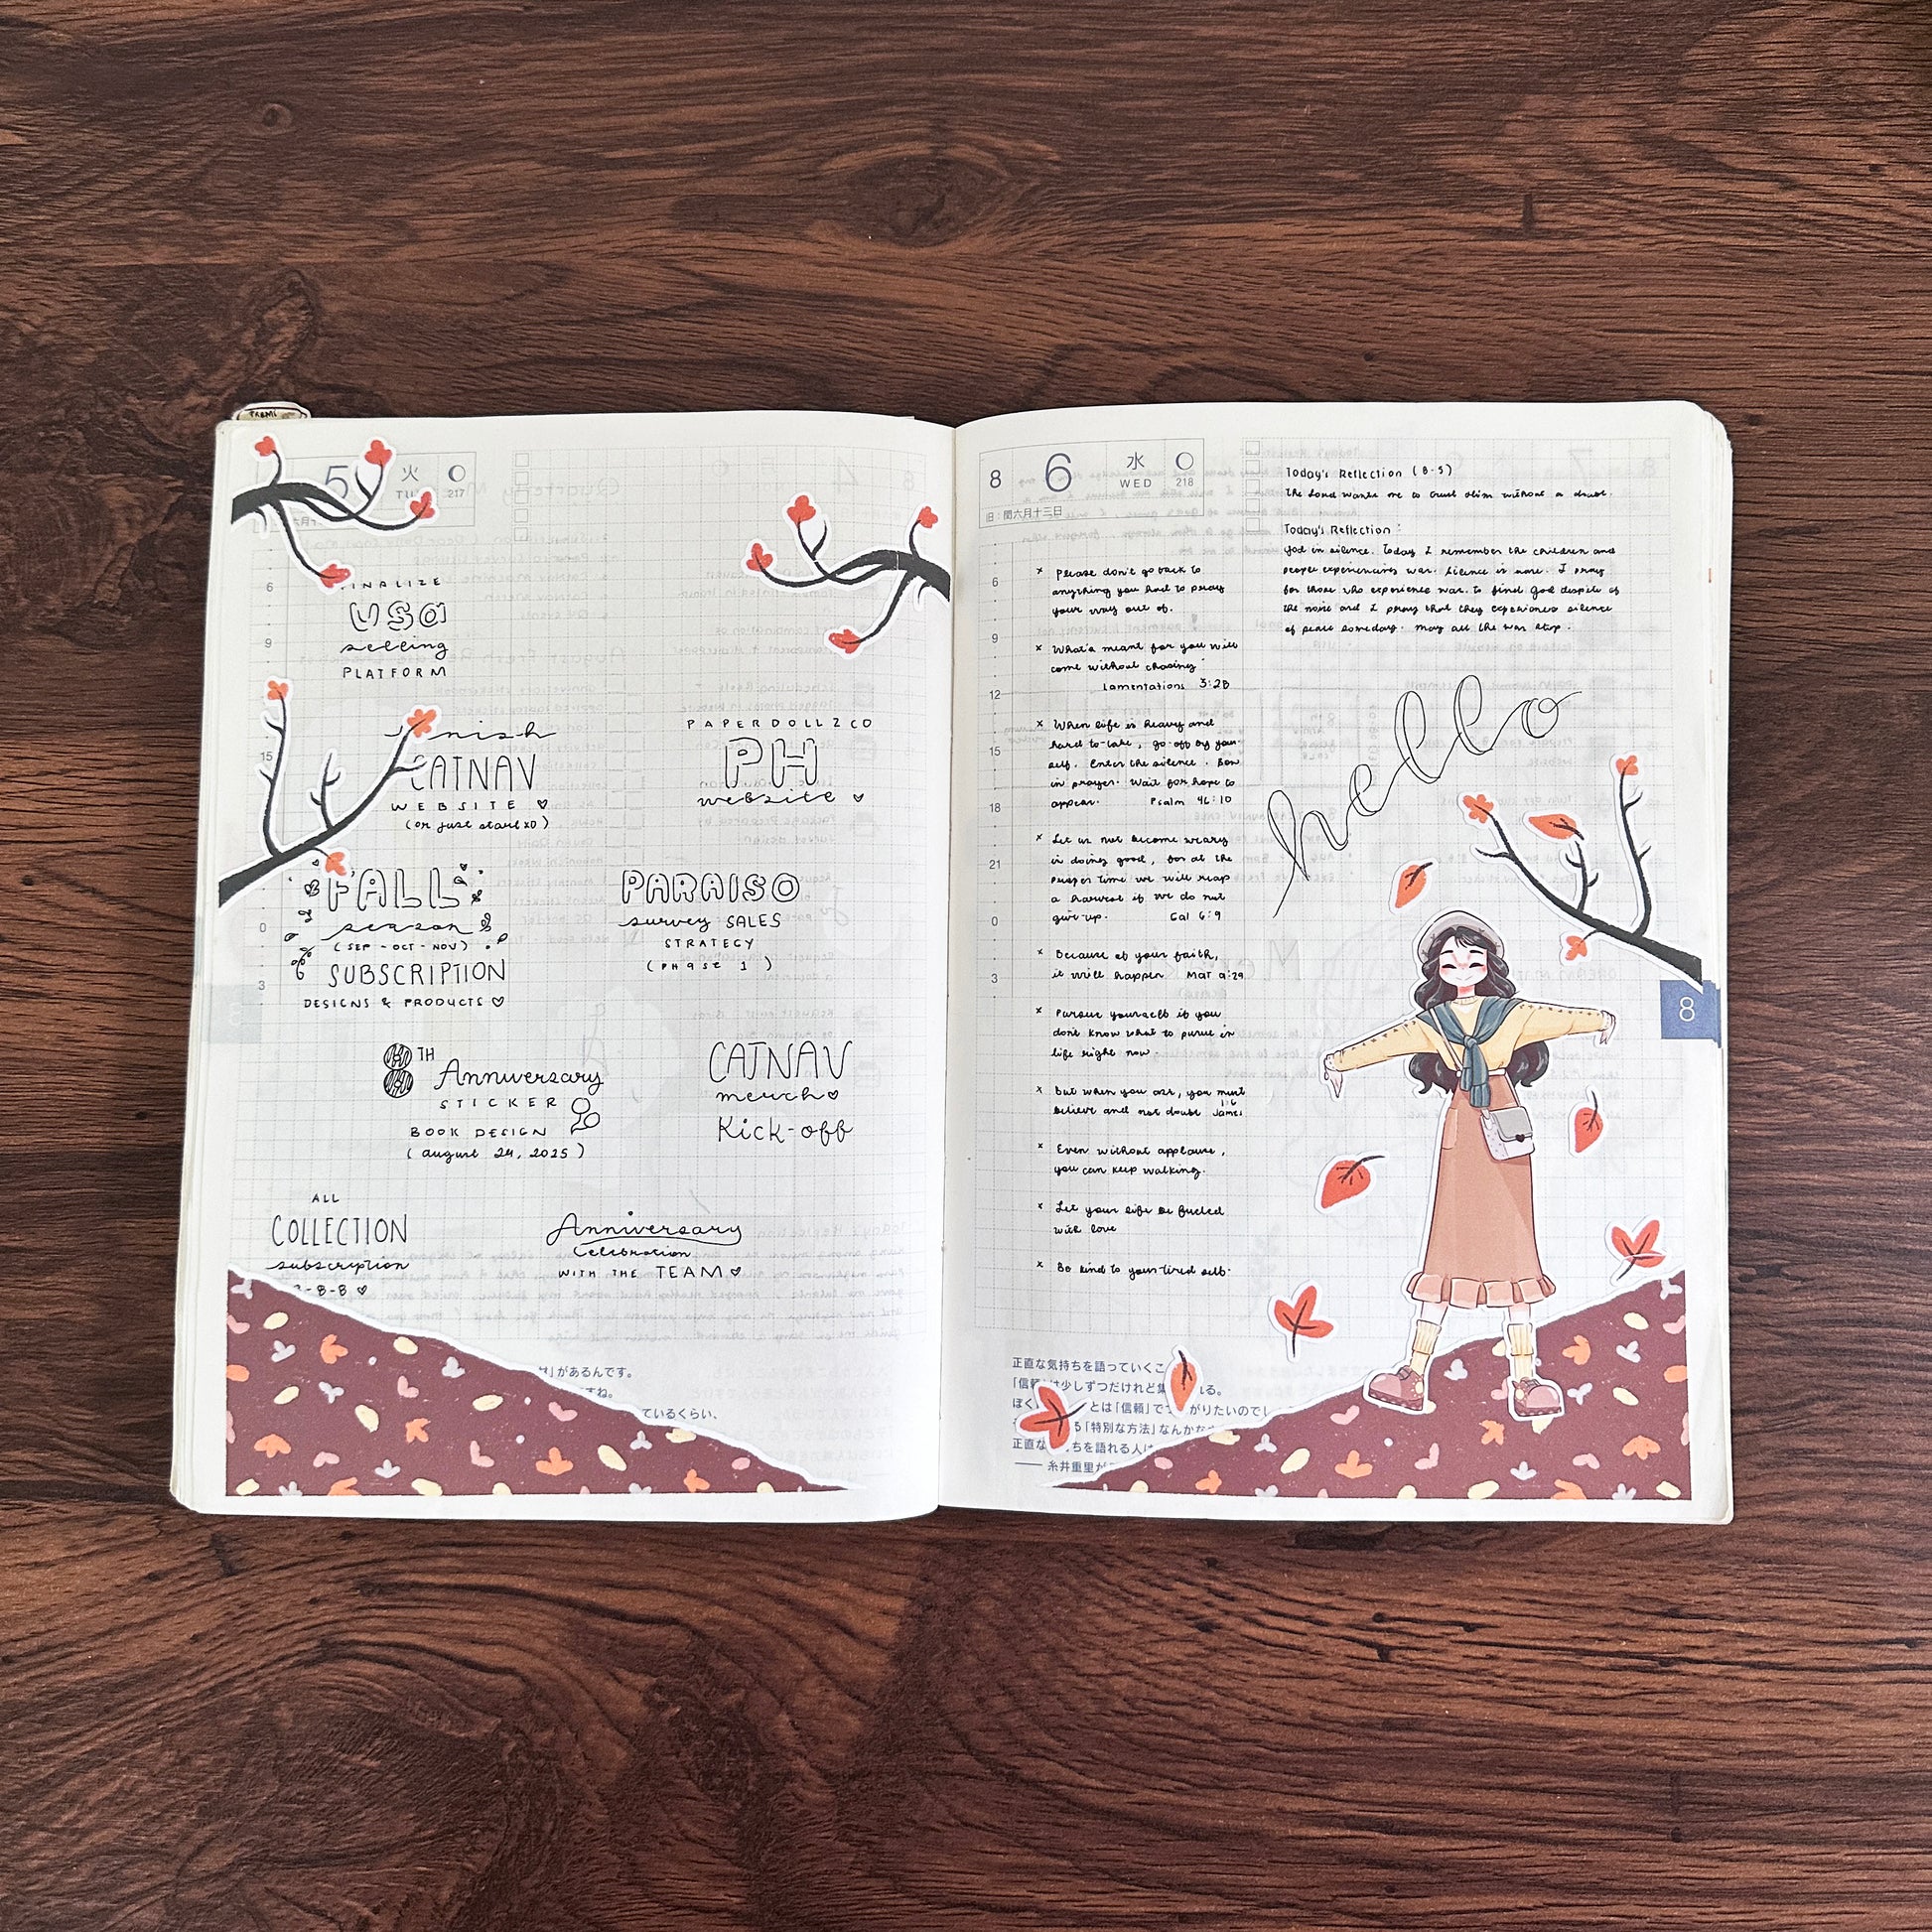 PREMI
5
火
TUE
217
INALIZE
USA
selling
PLATFORM
nish
CATNAV
WEBSITE ♡
(or just start XD)
PAPERDOLLZCO
PH
website ♡
FALL
season
(SEP - OCT - NOV)
SUBSCRIPTION
DESIGNS & PRODUCTS ♡
PARAISO
survey SALES
STRATEGY
(PHASE 1)
8TH
Anniversary
STICKER
BOOK DESIGN
(august 24, 2025)
CATNAV
merch ♡
Kick-off
ALL
COLLECTION
subscription
-8-8 ♡
Anniversary
Celebration
WITH THE TEAM ♡
6
9
15
0
3
」があるんです。
すね。
ているくらい、
8 6
水
WED
218
旧:閏六月十三日
6
9
12
15
18
21
0
3
x Please don't go back to
anything you had to pray
your way out of.
x What's meant for you will
come without chasing
Lamentations 3:28
x When life is heavy and
hard to take, go off by your-
self. Enter the silence. Bow
in prayer. Wait for hope to
appear. Psalm 46:10
x Let us not become weary
in doing good, for at the
proper time we will reap
a harvest if we do not
give up. Gal 6:9
x Because of your faith,
it will happen Mat 9:29
x Pursue yourself if you
don't know what to pursue in
life right now.
x But when you ask, you must
believe and not doubt James 1:6
x Even without applause,
you can keep walking.
x Let your life be fueled
with love
x Be kind to your tired self.
Today's Reflection (8-5)
The Lord wants me to trust Him without a doubt.
Today's Reflection:
God in silence. Today I remember the children and
people experiencing war. Silence is rare. I pray
for those who experience war. to find God despite of
the noise and I pray that they experience silence
of peace someday. May all the war stop.
hello
8
正直な気持ちを語っていくこ
「信頼」は少しずつだけれど集 れる。
ぼく とは「信頼」でつ がりたいのでし
る「特別な方法」なんかな
正直な ちを語れる人は
── 糸井重里が